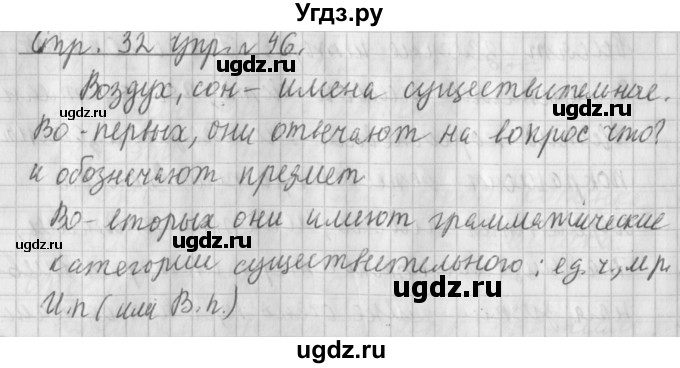 Угдз.ру
Стр. 32 упр. 46.
ugdz.ru
Воздух, сон - имена существительное.
ugdz.ru
ugdz.ru
Во-первых, они отвечают на вопрос что?
и обозначают предмет
ugdz.ru
Во-вторых они имеют грамматические
ugdz.ru
категории существительного: ед. ч., м.р.
ugdz.ru
И.п (или В.п.)
ugdz.ru